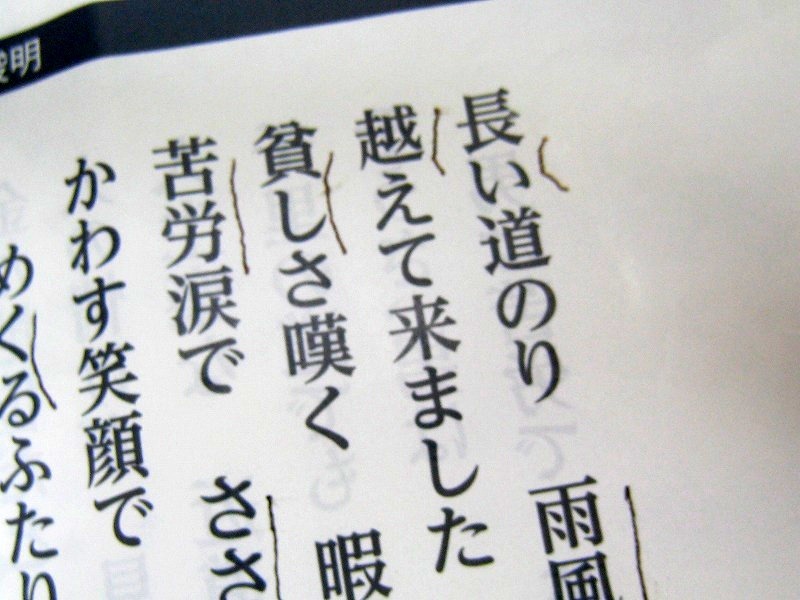 明
長い道のり 雨風
越えて来ました
貧しさ嘆く 暇
苦労涙で ささ
かわす笑顔で
めくるふたり